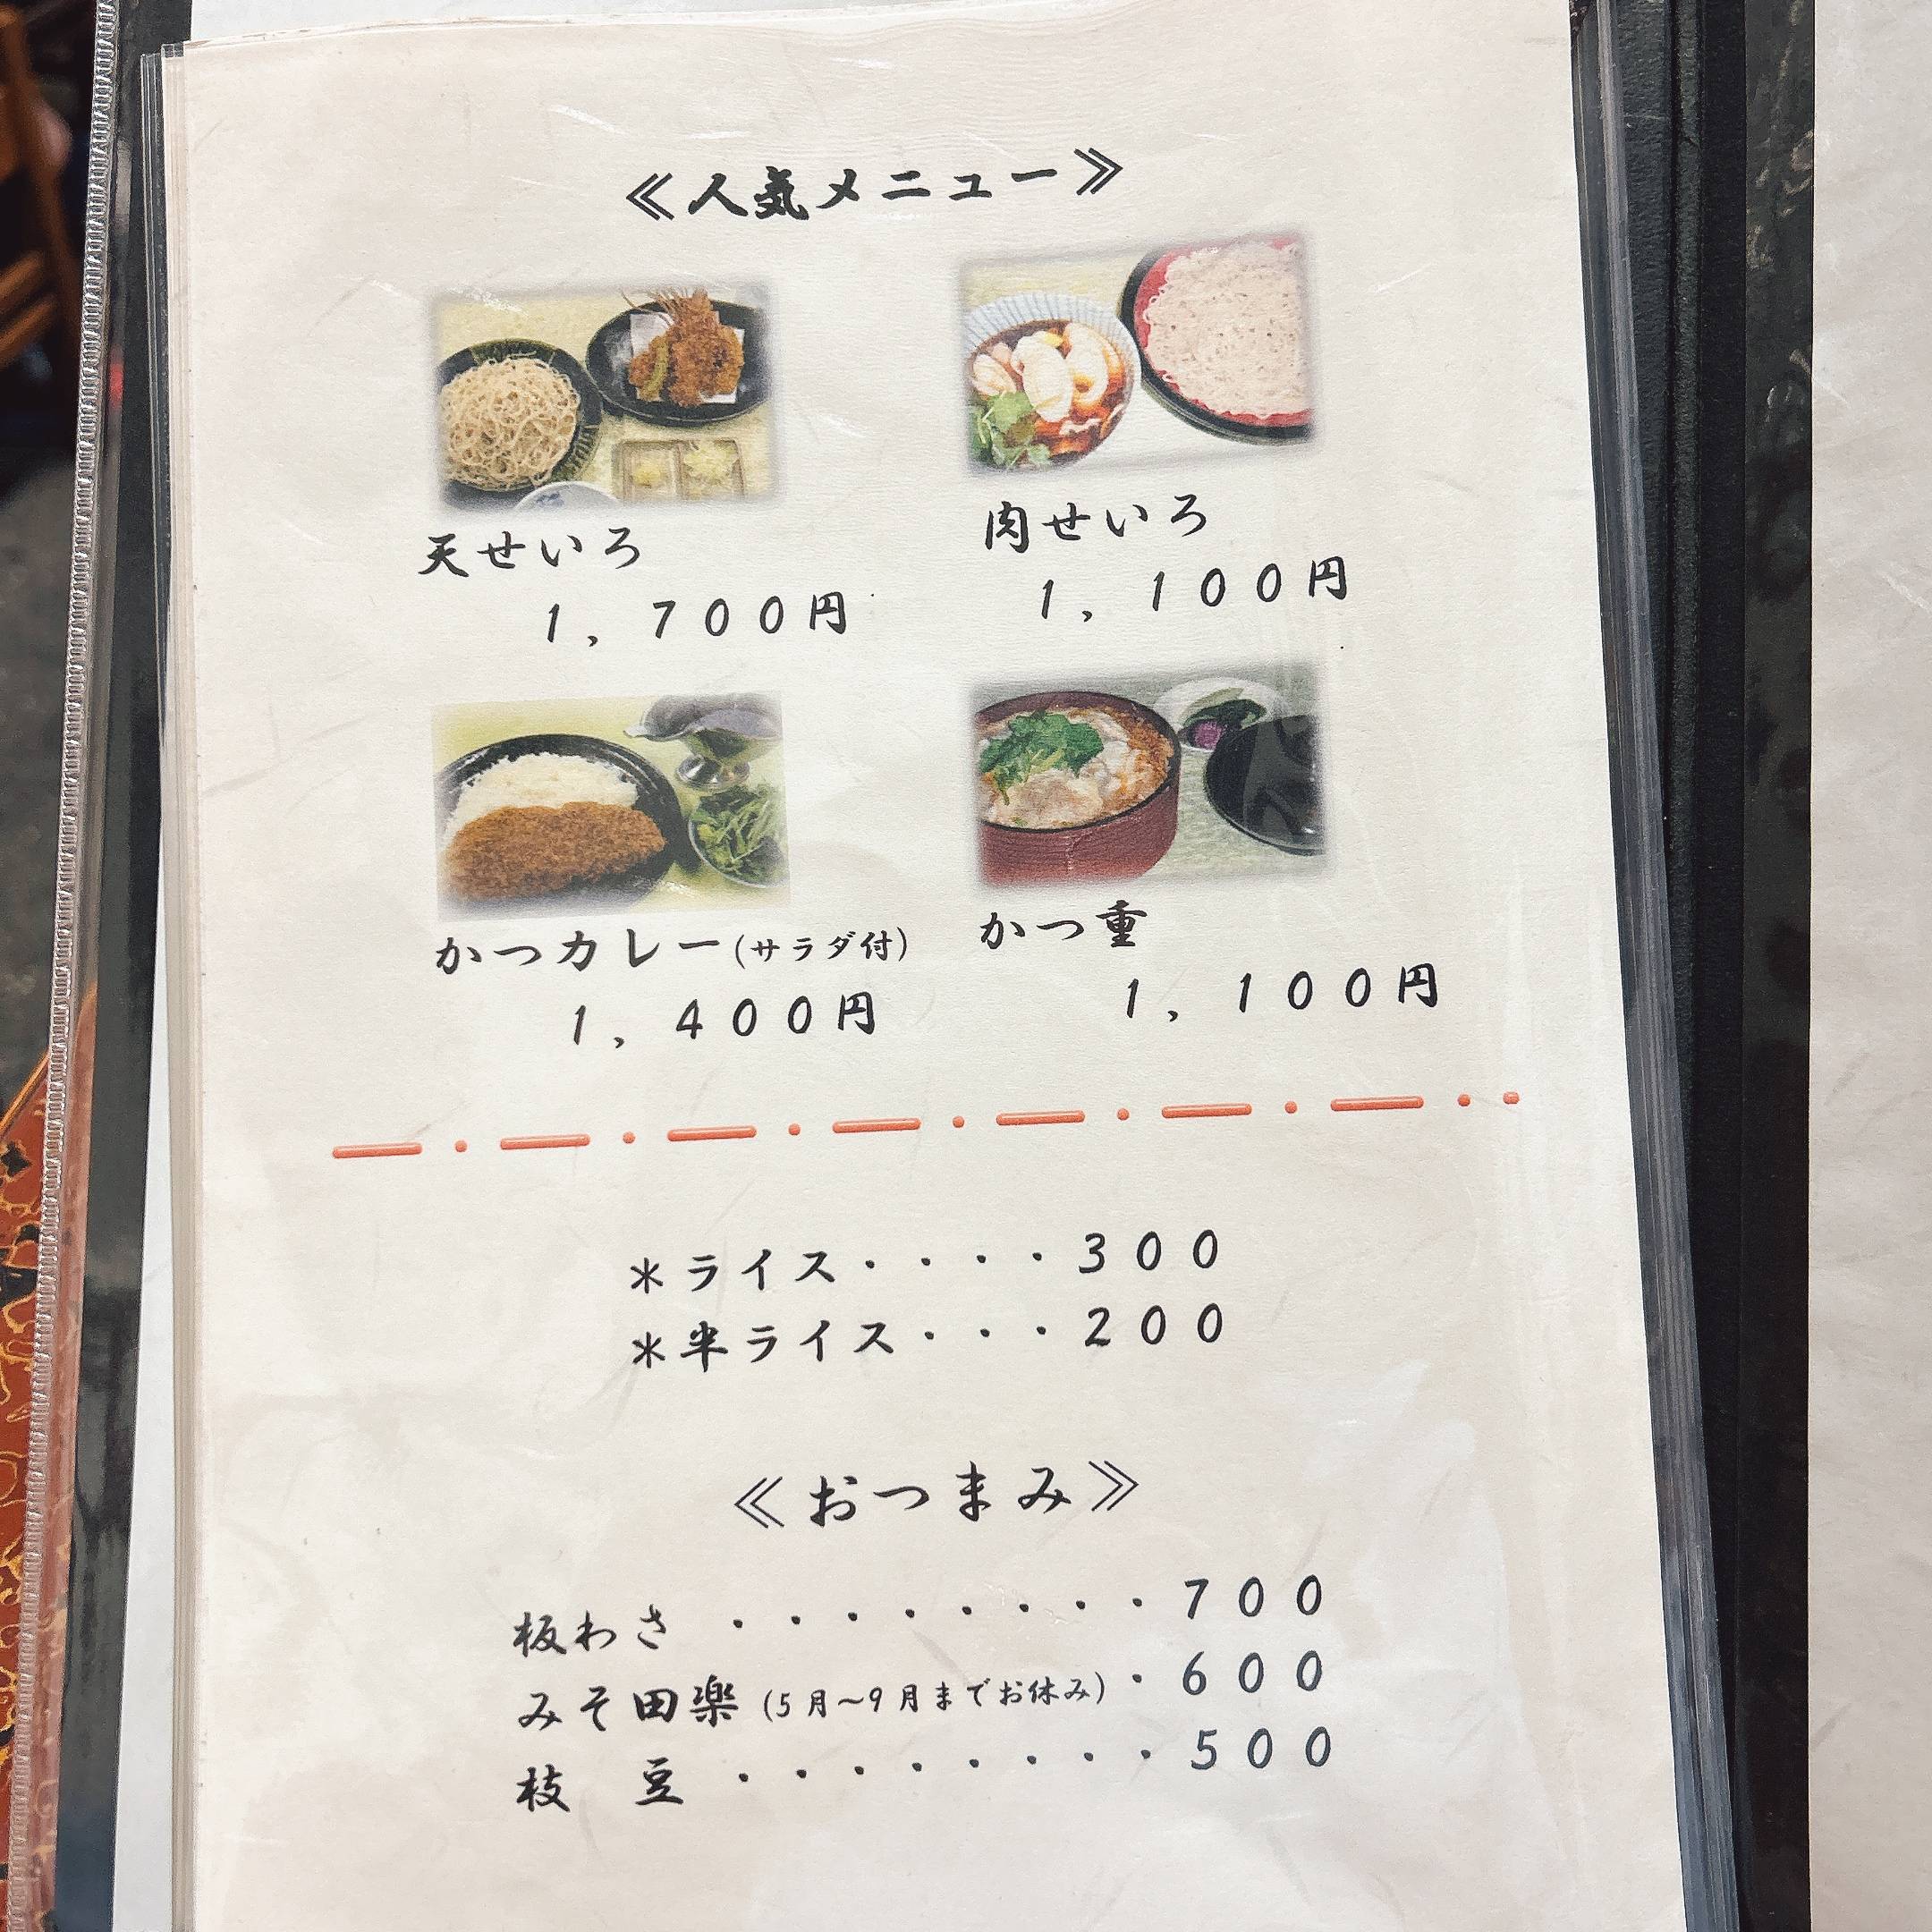 ≪人気メニュー≫
天せいろ
1，700円
肉せいろ
1，100円
かつカレー(サラダ付)
1，400円
かつ重
1，100円
＊ライス・・・・300
＊半ライス・・・200
≪おつまみ≫
板わさ ・・・・・・・・700
みそ田楽(5月～9月までお休み)・600
枝　豆 ・・・・・・・・500